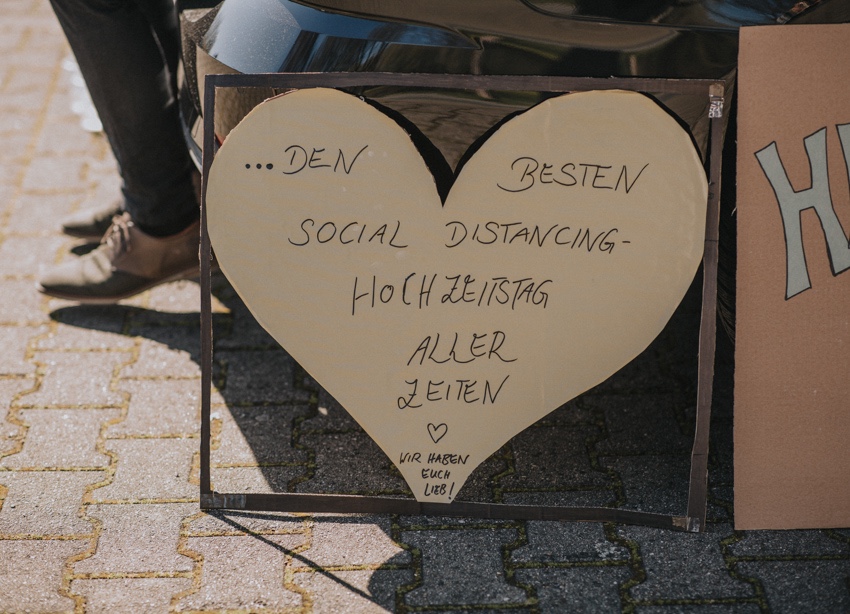 ...DEN BESTEN
SOCIAL DISTANCING-
HOCHZEITSTAG
ALLER
ZEITEN
♡
WIR HABEN
EUCH
LIEB!